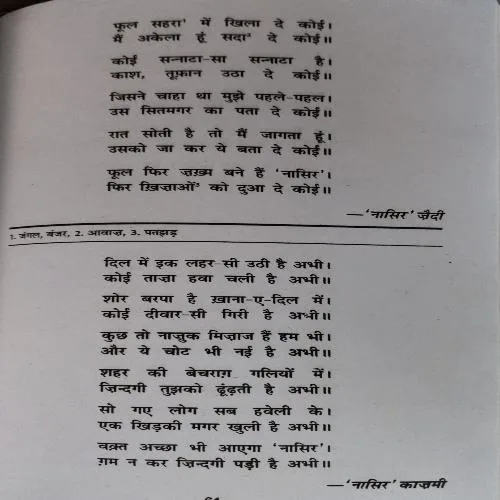 फूल सहरा¹ में खिला दे कोई।
मैं अकेला हूं सदा² दे कोई॥
कोई सन्नाटा-सा सन्नाटा है।
काश, तूफ़ान उठा दे कोई॥
जिसने चाहा था मुझे पहले-पहल।
उस सितमगर का पता दे कोई॥
रात सोती है तो मैं जागता हूं।
उसको जा कर ये बता दे कोई॥
फूल फिर ज़ख़्म बने हैं ‘नासिर’।
फिर ख़िज़ाओं³ को दुआ दे कोई॥
—‘नासिर’ ज़ैदी
1. जंगल, बंजर, 2. आवाज़, 3. पतझड़
दिल में इक लहर-सी उठी है अभी।
कोई ताज़ा हवा चली है अभी॥
शोर बरपा है ख़ाना-ए-दिल में।
कोई दीवार-सी गिरी है अभी॥
कुछ तो नाज़ुक मिज़ाज हैं हम भी।
और ये चोट भी नई है अभी॥
शहर की बेचराग़ गलियों में।
ज़िन्दगी तुझको ढूंढ़ती है अभी॥
सो गए लोग सब हवेली के।
एक खिड़की मगर खुली है अभी॥
वक़्त अच्छा भी आएगा ‘नासिर’।
ग़म न कर ज़िन्दगी पड़ी है अभी॥
—‘नासिर’ काज़मी